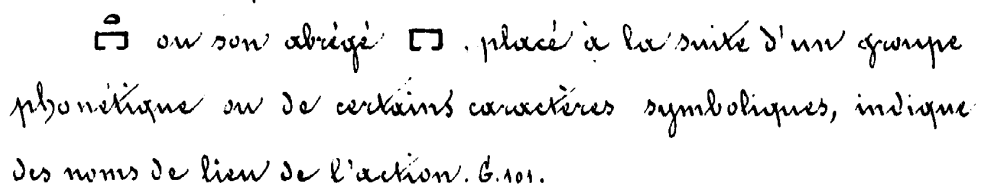 ou son abrégé . placé à la suite d'un groupe
phonétique ou de certains caractères symboliques, indique
des noms de lieu de l'action. G. 101.